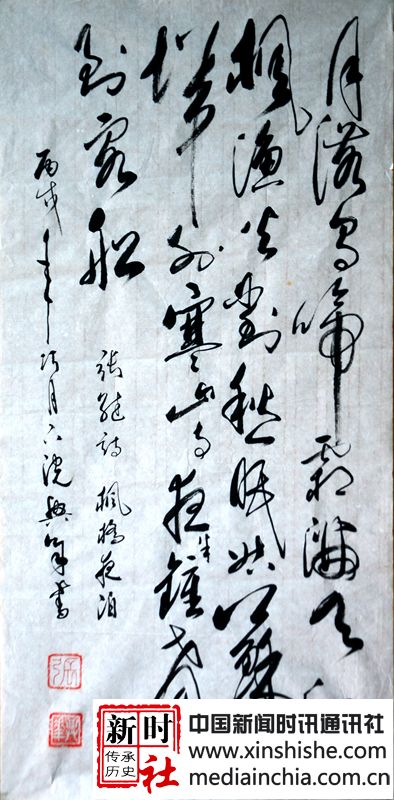 月落烏啼霜滿天
楓漁火對愁眠姑蘇
城外寒山寺夜半鐘聲
到客船
張繼詩 楓橋夜泊
丙戌年 月 書
張
新时社
传承历史
中国新闻时讯通讯社
www.xinshishe.com
mediainchia.com.cn